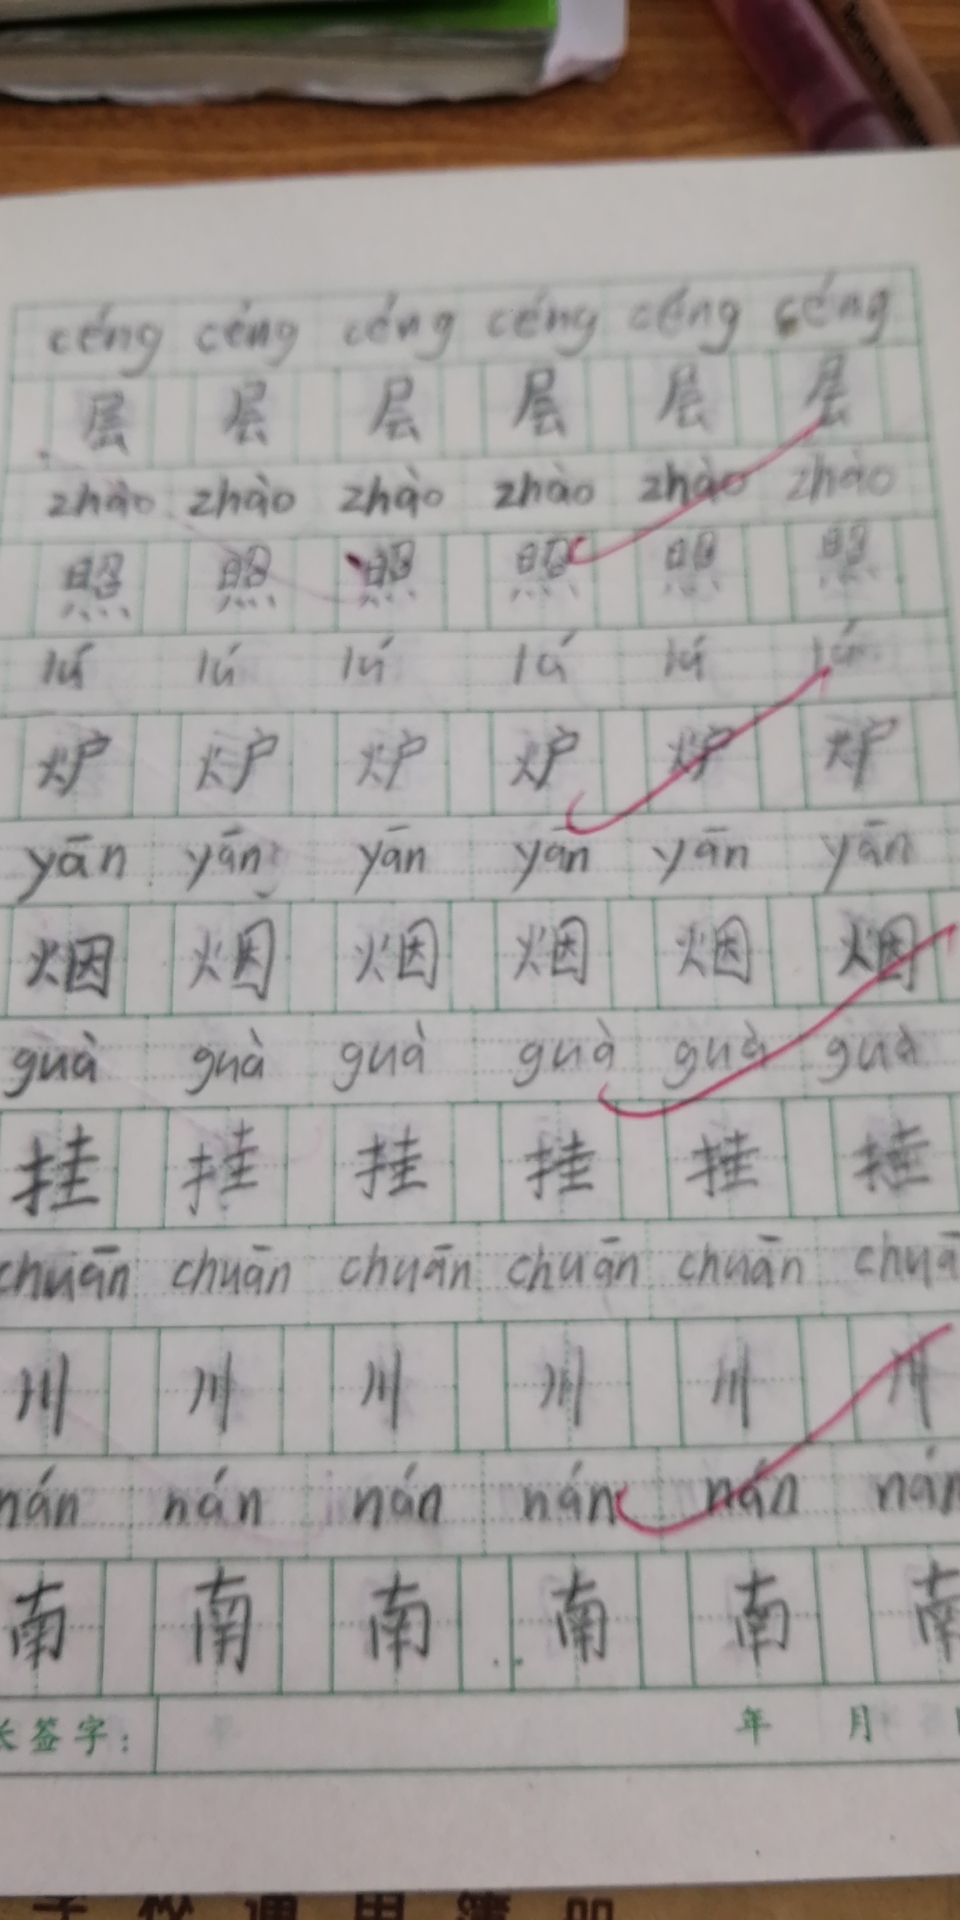 céng céng céng céng céng céng
层 层 层 层 层 层
zhào zhào zhào zhào zhào zhào
照 照 照 照 照 照
lú lú lú lú lú lú
炉 炉 炉 炉 炉 炉
yān yān yān yān yān yān
烟 烟 烟 烟 烟 烟
guà guà guà guà guà guà
挂 挂 挂 挂 挂 挂
chuān chuān chuān chuān chuān chuā
川 川 川 川 川 川
nán nán nán nán nán nán
南 南 南 南 南 南
长签字: 年 月
学校通用簿册